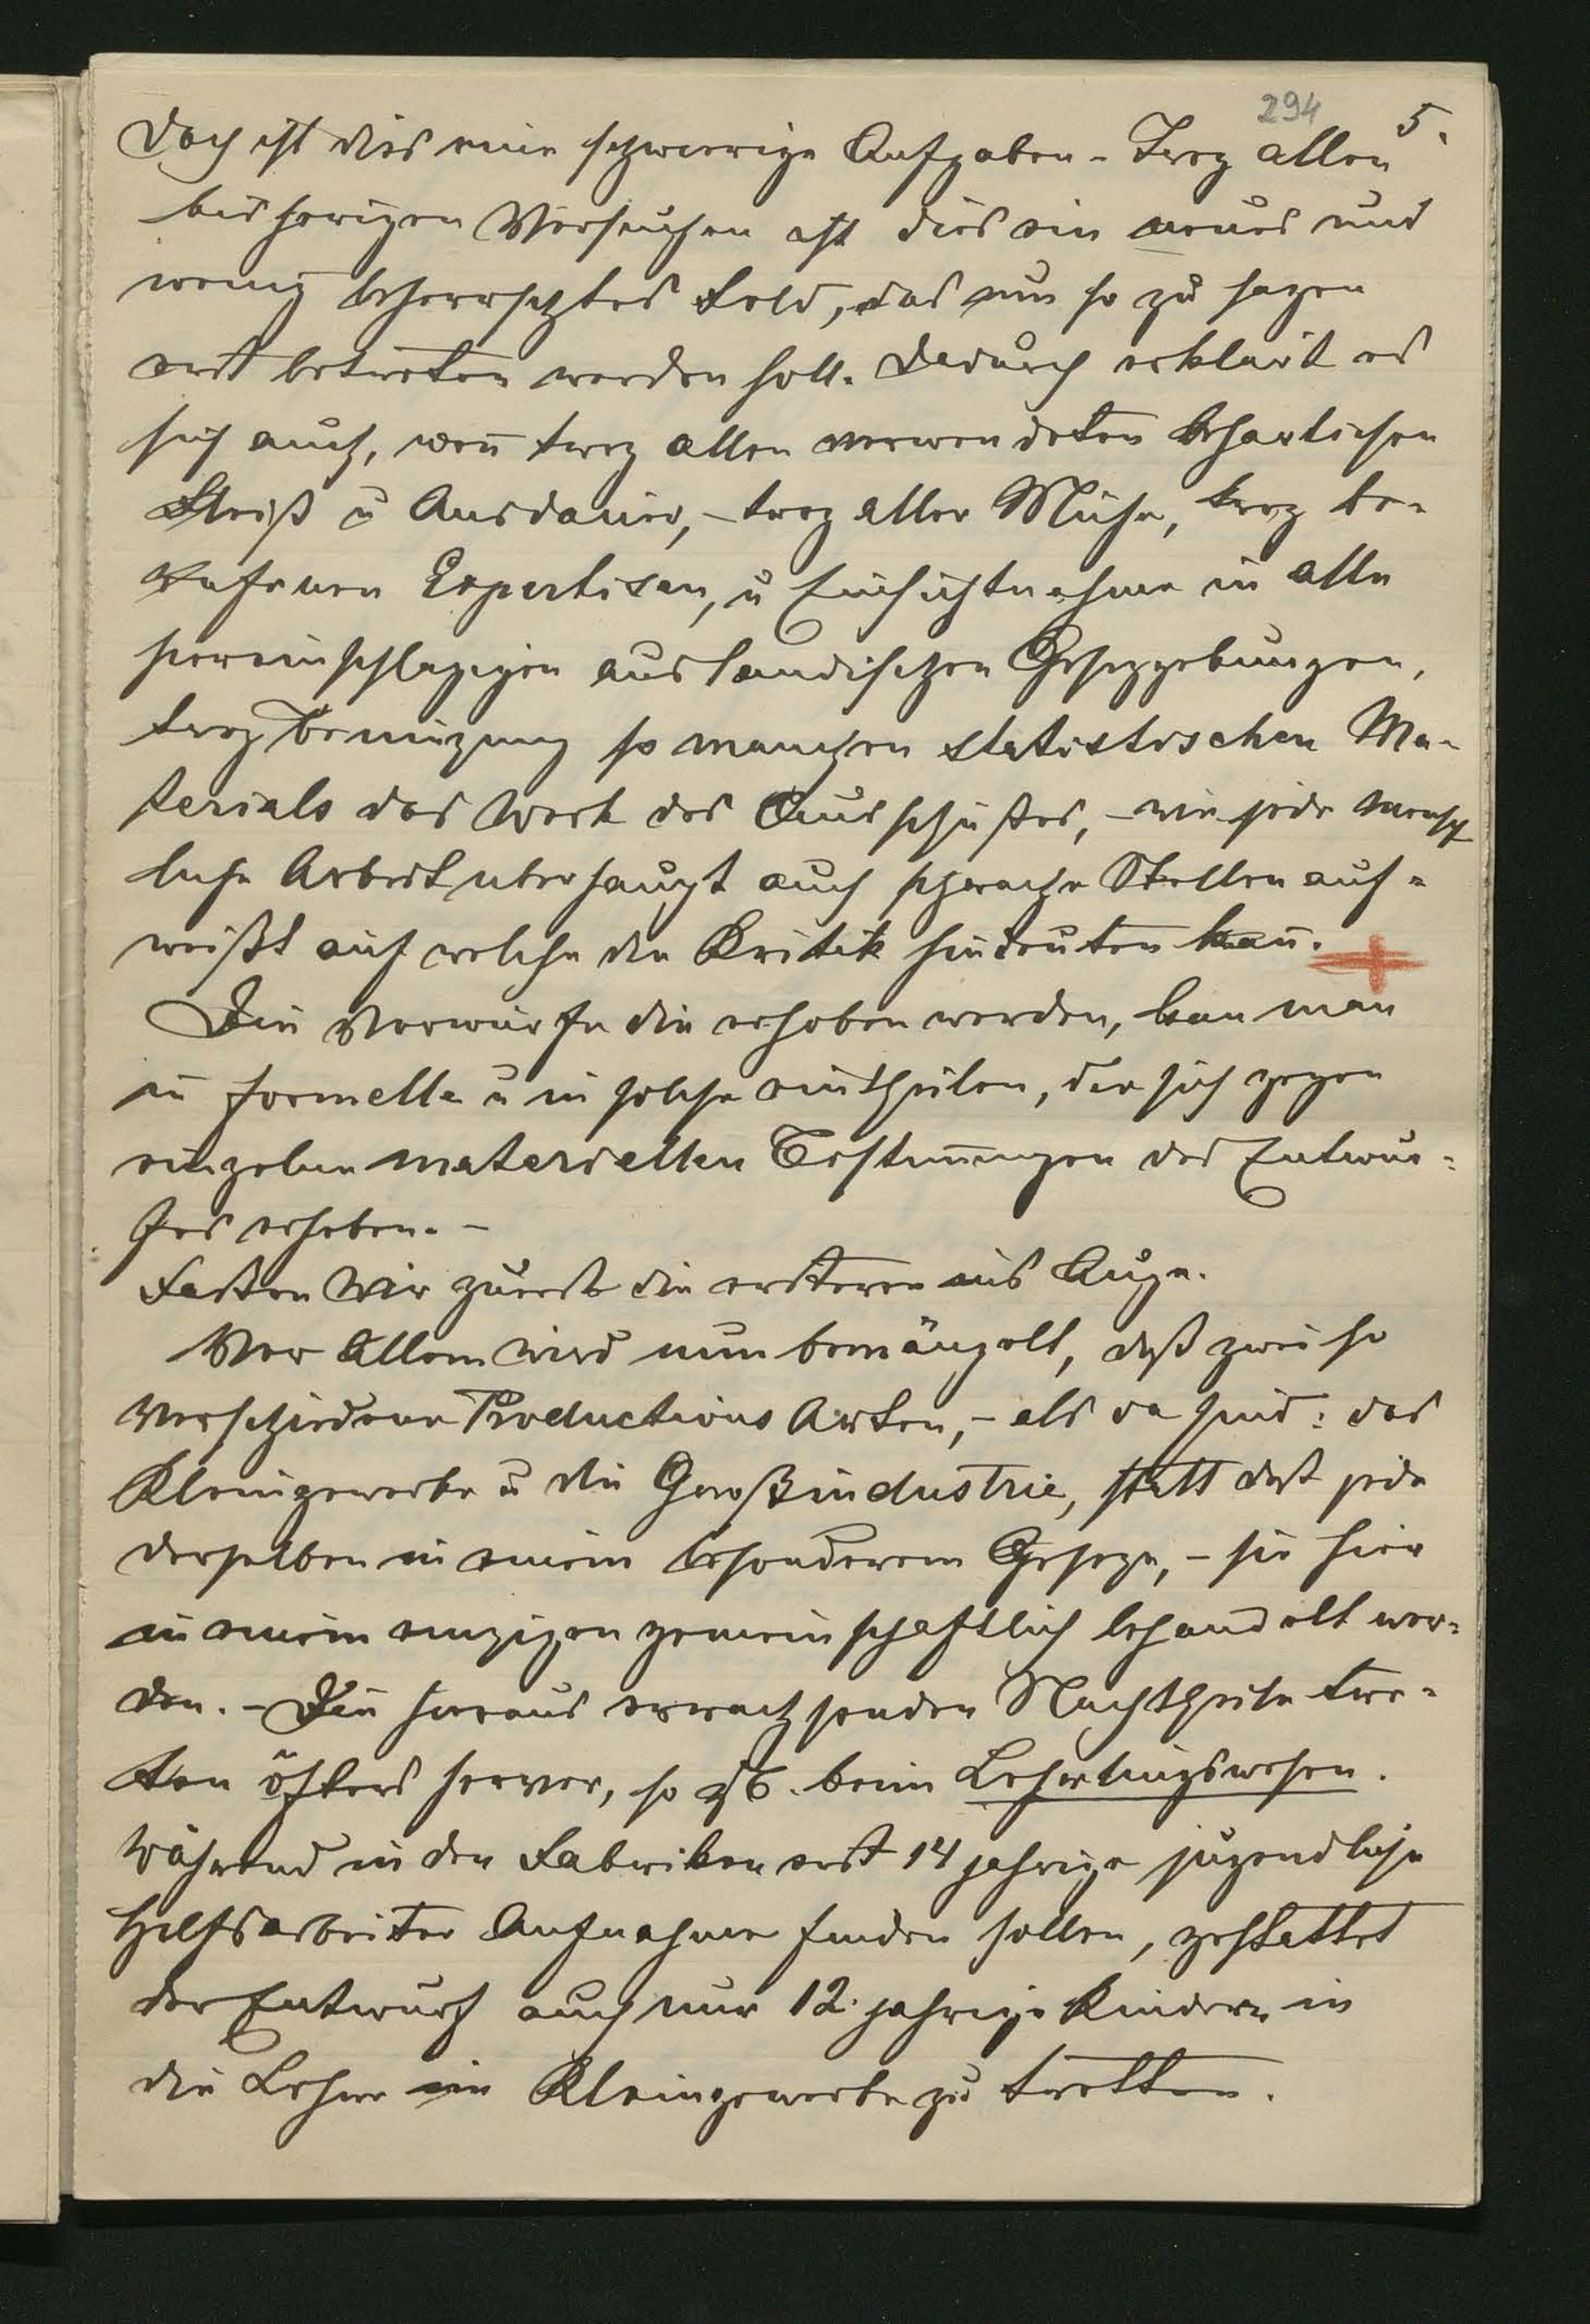 294 5.
Doch ist dies eine schwierige Aufgaben - Troz allen
bisherigen Versuchen ist dies ein neues und
wenig beherrschtes Feld, das nun so zu sagen
erst betreten werden soll. Dadurch erklärt es
sich auch, wen̄ troz allen verwendeten beharlichen
Fleiß u Ausdauer, - troz aller Mühe, troz be-
rufenen Expertisen, u Einsichtnahme in alle
hereinschlagigen auslandischen Gesezgebungen,
troz Benüzung so manchen statistischen Ma-
terials das Werk des Ausschußes, - wie jede mensch
liche Arbeit uberhaupt auch schwache Stellen auf-
weißt auf welche die Kritik hindeuten kan̄.
Die Vorwürfe die erhoben werden, kan man
in formelle u in solche eintheilen, die sich gegen
einzelne materiellen Bestim̄ungen des Entwur-
fes erheben. -
Faßen wir zuerst die ersteren ins Auge.
Vor Allem wird nun bemängelt, daß zwei so
verschiedene Productions Arten, - als da sind: das
Kleingewerbe u die Großindustrie, statt daß jede
derselben in einem besonderem Geseze, - sie hier
in einem einzigen gemeinschaftlich behandelt wer-
den. - Die hieraus erwachsenden Nachtheile tre-
ten öfters hervor, so zB. beim Lehrlingswesen.
Während in den Fabriken erst 14 jahrige jugendliche
Hilfsarbeiter Aufnahme finden sollen, gestattet
der Entwurf auch nur 12. jahrige Kindern in
die Lehre im Kleingewerbe zu tretten.